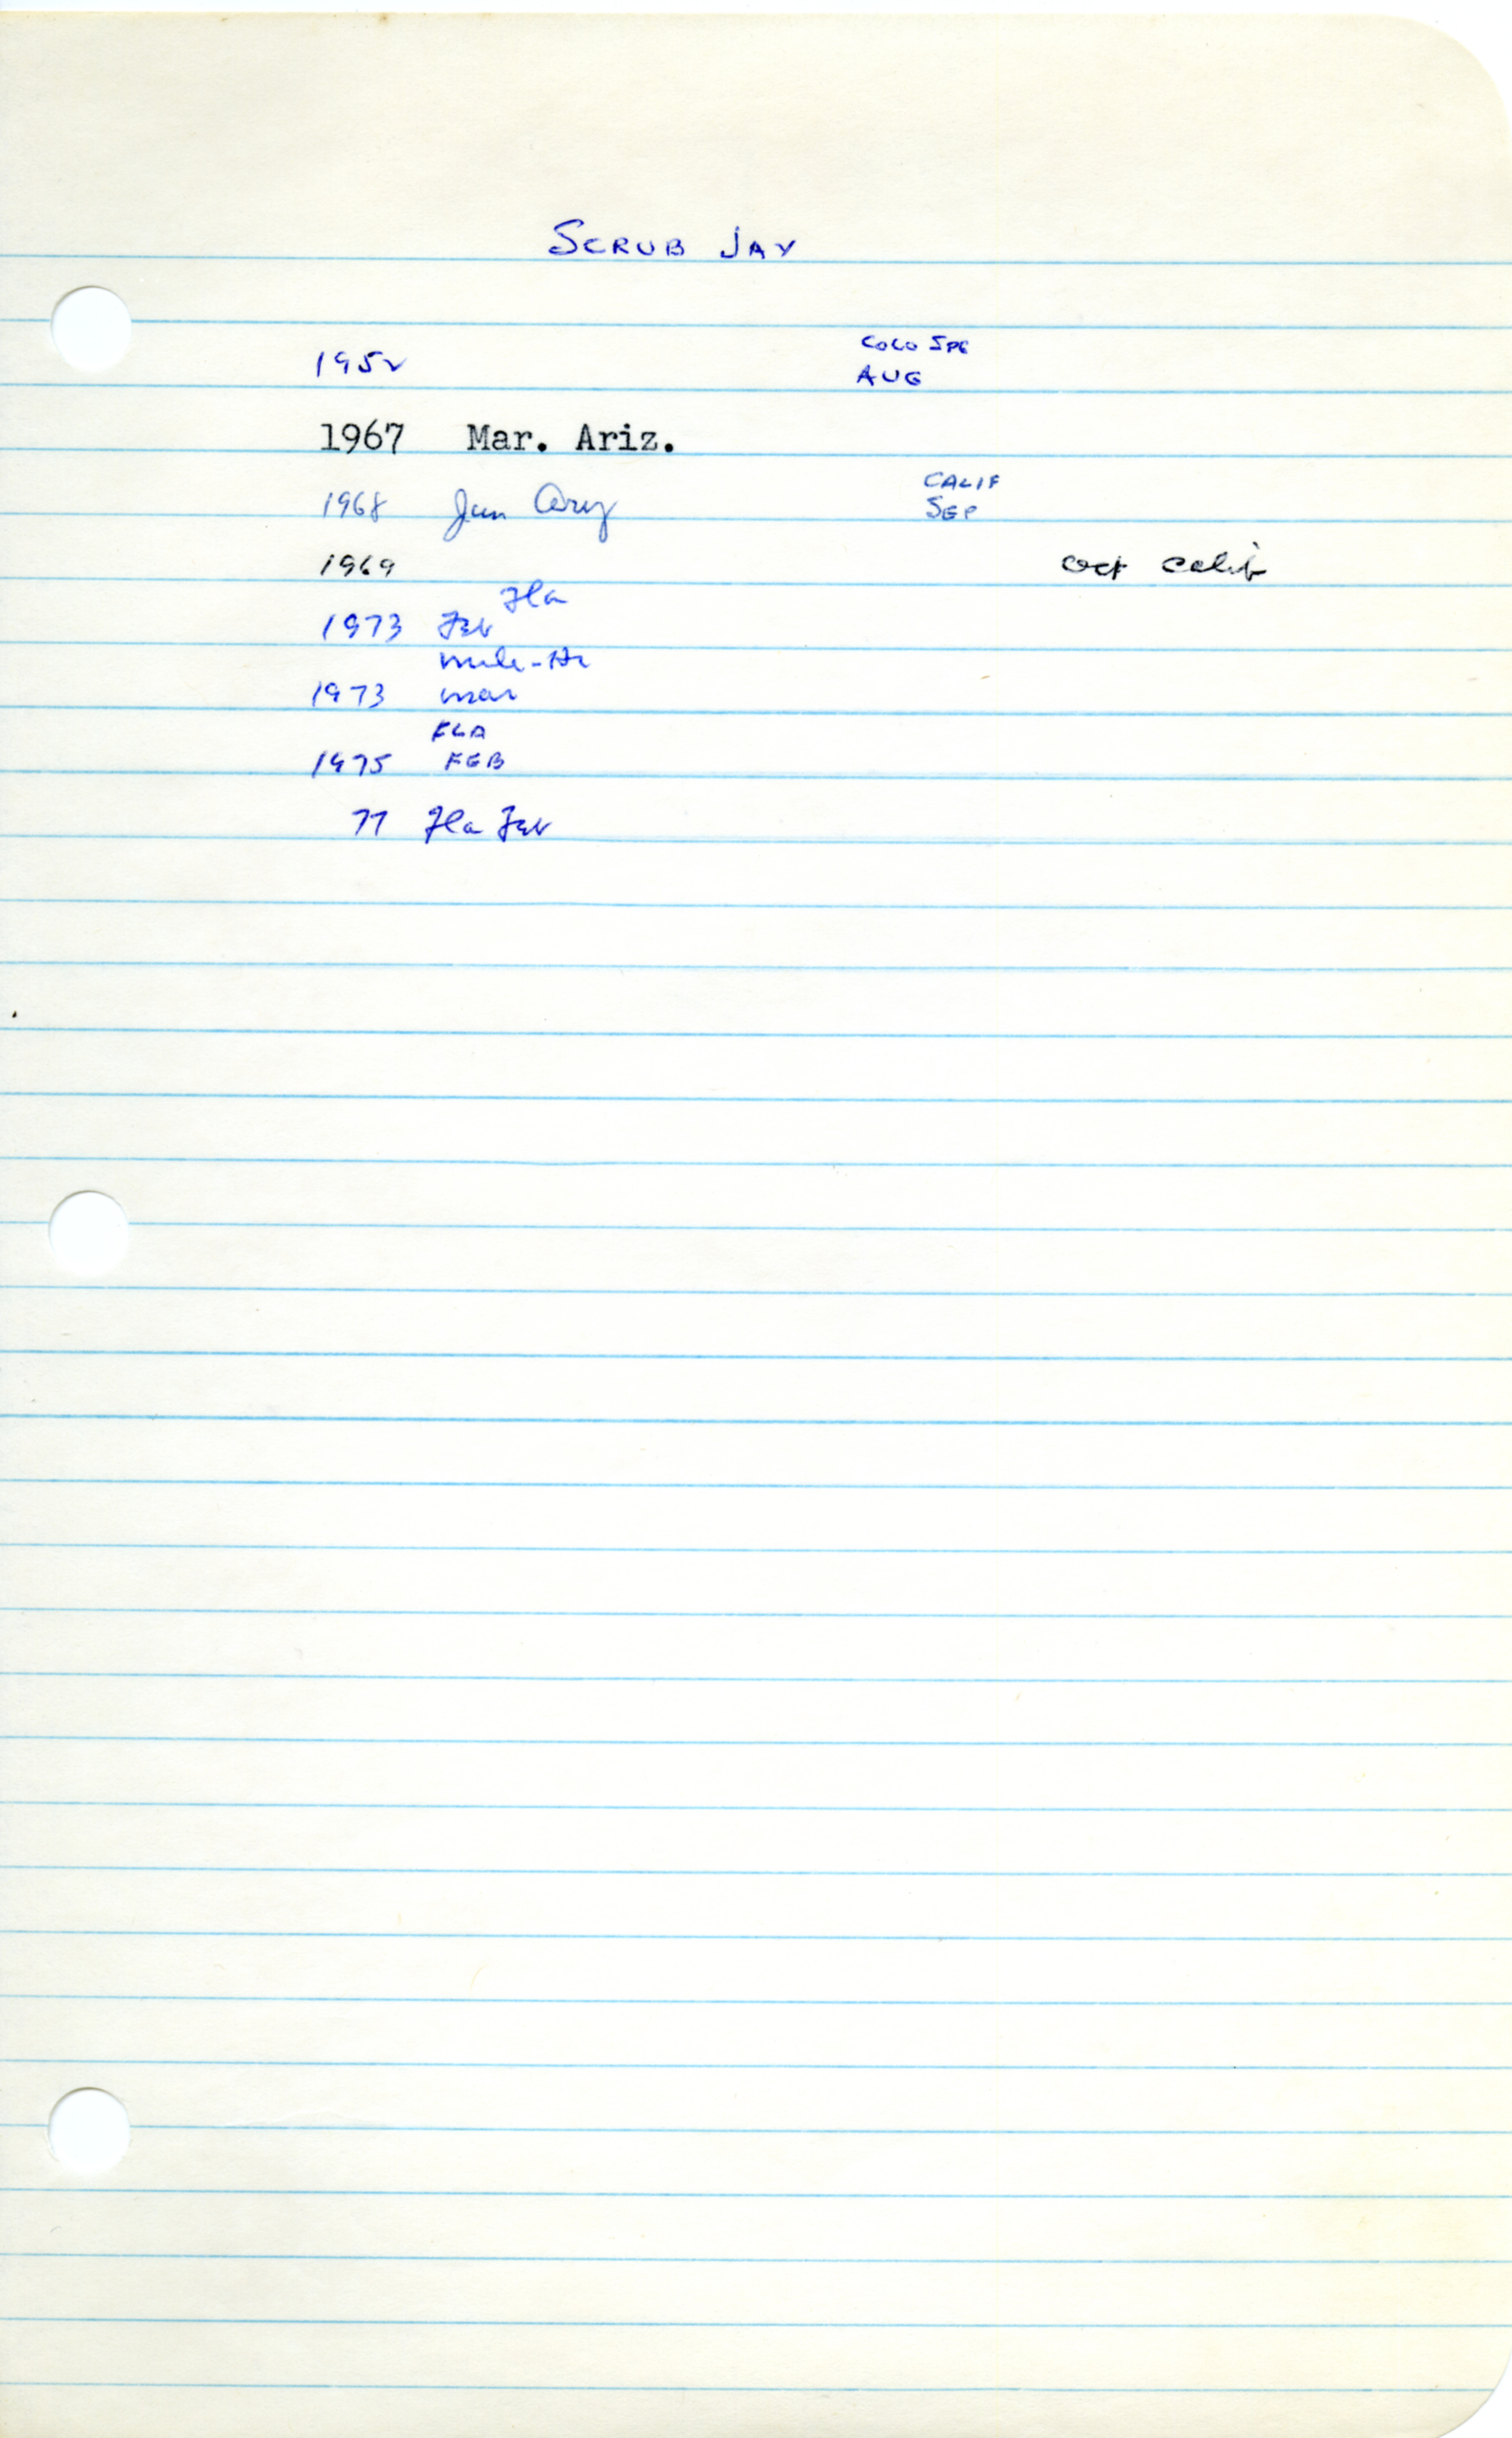 SCRUB JAY
COLO SPG
1952 AUG
1967 Mar. Ariz.
CALIF
1968 Jan SEP
1969 Oct Calif
Fla
1973 Feb
1973 Mar
FLA
1975 FEB
77 Fla Feb